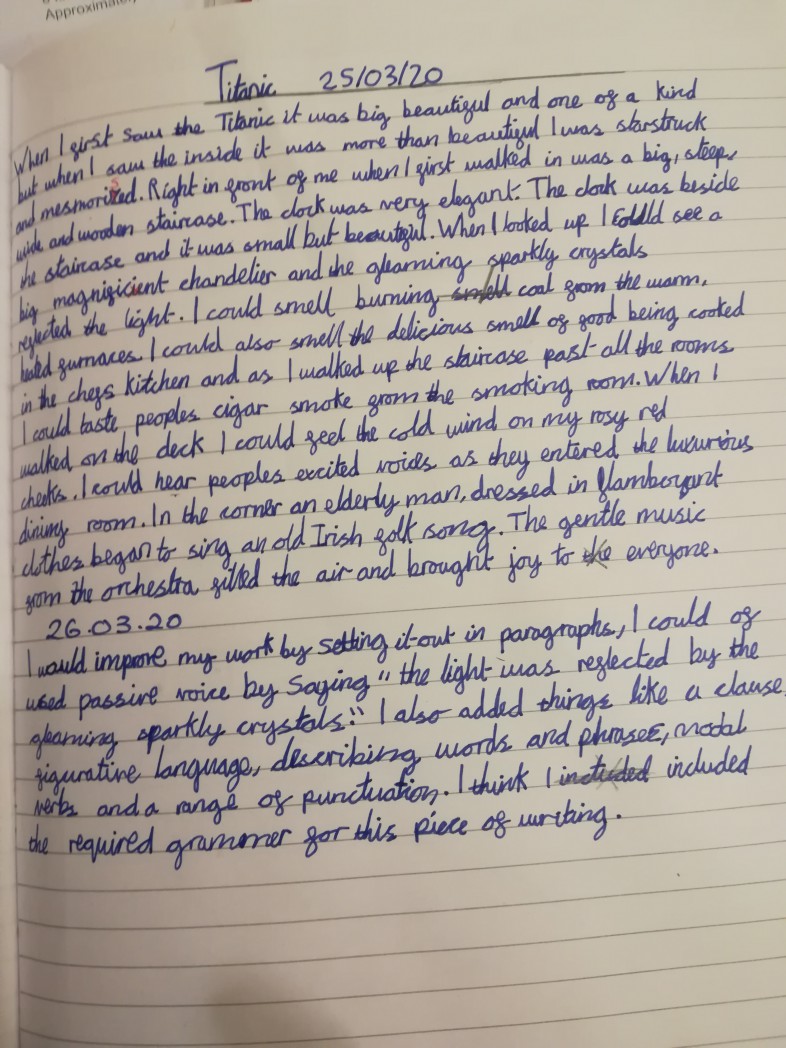 Approximate
Titanic 25/03/20
When I first saw the Titanic it was big, beautiful and one of a kind
but when I saw the inside it was more than beautiful I was starstruck
and mesmorized. Right in front of me when I first walked in was a big, steep,
wide and wooden staircase. The clock was very elegant. The clock was beside
the staircase and it was small but beautiful. When I looked up I could see a
big magnificient chandelier and the gleaming sparkly crystals
reflected the light. I could smell burning coal from the warm,
heated furnaces. I could also smell the delicious smell of food being cooked
in the chefs kitchen and as I walked up the staircase past all the rooms
I could taste peoples cigar smoke from the smoking room. When I
walked on the deck I could feel the cold wind on my rosy red
cheeks. I could hear peoples excited voices as they entered the luxurious
dining room. In the corner an elderly man, dressed in flamboyant
clothes began to sing an old Irish folk song. The gentle music
from the orchestra filled the air and brought joy to everyone.
26.03.20
I would improve my work by setting it out in paragraphs, I could of
used passive voice by saying "the light was reflected by the
gleaming sparkly crystals." I also added things like a clause,
figurative language, describing words and phrases, modal
verbs and a range of punctuation. I think I included
the required grammer for this piece of writing.